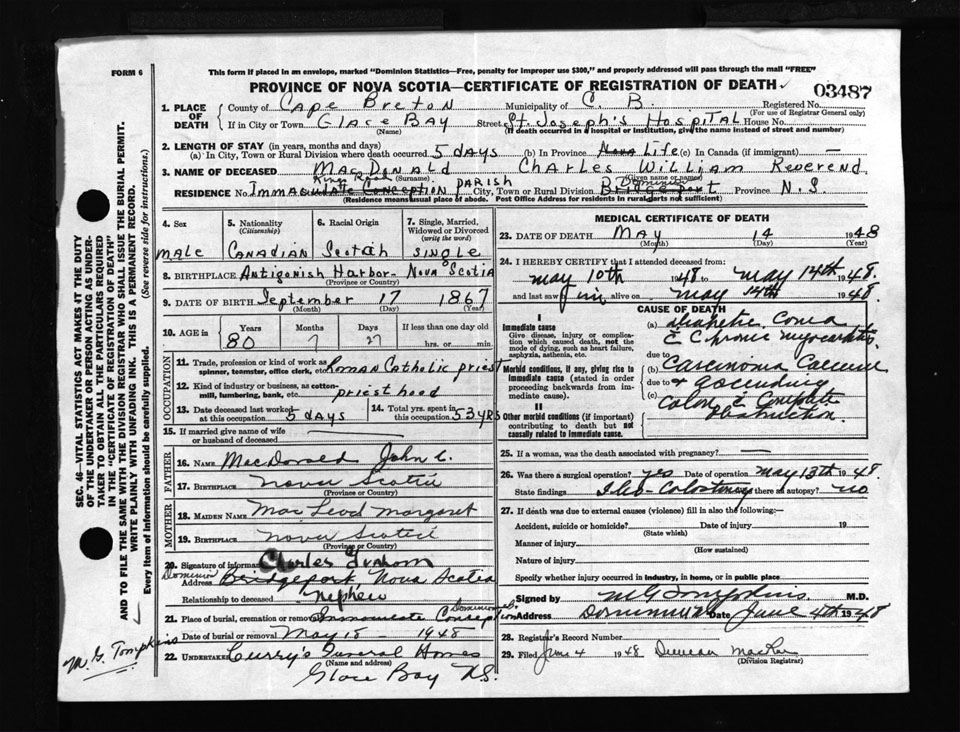 FORM 6
This form if placed in an envelope, marked "Dominion Statistics—Free, penalty for improper use $300," and properly addressed will pass through the mail "FREE"
PROVINCE OF NOVA SCOTIA—CERTIFICATE OF REGISTRATION OF DEATH
03487
1. PLACE OF DEATH
County of Cape Breton Municipality of C. B. Registered No.
(For use of Registrar General only)
If in City or Town GLACE BAY Street St. Joseph's Hospital House No.
(Name) (If death occurred in a hospital or institution, give the name instead of street and number)
2. LENGTH OF STAY (in years, months and days)
(a) In City, Town or Rural Division where death occurred 5 days (b) In Province Life (c) In Canada (if immigrant) —
3. NAME OF DECEASED MacDonald Charles William Reverend
(Surname) (Given name or names)
RESIDENCE No. Immaculate Conception Parish City, Town or Rural Division Dominion Bridgeport Province N. S
(Residence means usual place of abode. Post Office Address for residents in rural parts not sufficient)
4. Sex
male
5. Nationality
(Citizenship)
Canadian
6. Racial Origin
Scotch
7. Single, Married, Widowed or Divorced
(write the word)
single
8. BIRTHPLACE Antigonish Harbor - Nova Scotia
(Province or Country)
9. DATE OF BIRTH September 17 1867
(Month) (Day) (Year)
10. AGE in Years Months Days If less than one day old
80 7 27 hrs. or min.
OCCUPATION
11. Trade, profession or kind of work as spinner, teamster, office clerk, etc. Roman Catholic priest
12. Kind of industry or business, as cotton-mill, lumbering, bank, etc. priesthood
13. Date deceased last worked at this occupation 5 days
14. Total yrs. spent in this occupation 53 yrs
15. If married give name of wife or husband of deceased —
FATHER
16. NAME MacDonald John C.
17. BIRTHPLACE Nova Scotia
(Province or Country)
MOTHER
18. MAIDEN NAME MacLeod Margaret
19. BIRTHPLACE Nova Scotia
(Province or Country)
20. Signature of informant Charles Graham
Dominion
Address Bridgeport Nova Scotia
Relationship to deceased nephew
21. Place of burial, cremation or removal Immaculate Conception Dominion
Date of burial or removal May 18 - 1948
22. UNDERTAKER Curry's Funeral Homes
(Name and address)
Glace Bay N.S.
MEDICAL CERTIFICATE OF DEATH
23. DATE OF DEATH May 14 1948
(Month) (Day) (Year)
24. I HEREBY CERTIFY that I attended deceased from
May 10th 1948 to May 14th 1948.
and last saw him alive on May 14th 1948.
CAUSE OF DEATH
I
Immediate cause
Give disease, injury or complication which caused death, not the mode of dying, such as heart failure, asphyxia, asthenia, etc.
Morbid conditions, if any, giving rise to immediate cause (stated in order proceeding backwards from immediate cause).
II
Other morbid conditions (if important) contributing to death but not causally related to immediate cause.
(a) Diabetic Coma
c Chronic myocarditis
due to
(b) Carcinoma Caecum
due to & ascending
(c) Colon c Complete
Obstruction.
25. If a woman, was the death associated with pregnancy? —
26. Was there a surgical operation? yes Date of operation May 13th 1948
State findings Ileo-Colostomy Was there an autopsy? no
27. If death was due to external causes (violence) fill in also the following:—
Accident, suicide or homicide? Date of injury 19
(State which)
Manner of injury
(How sustained)
Nature of injury
Specify whether injury occurred in industry, in home, or in public place
Signed by M G Tompkins M.D.
Address Dominion Date June 4th 1948
28. Registrar's Record Number
29. Filed June 4 1948 Duncan MacRae
(Division Registrar)
SEC. 46—VITAL STATISTICS ACT MAKES IT THE DUTY
OF THE UNDERTAKER OR PERSON ACTING AS UNDER-
TAKER TO OBTAIN ALL THE PARTICULARS REQUIRED
IN THE "CERTIFICATE OF REGISTRATION OF DEATH"
AND TO FILE THE SAME WITH THE DIVISION REGISTRAR WHO SHALL ISSUE THE BURIAL PERMIT.
WRITE PLAINLY WITH UNFADING INK. THIS IS A PERMANENT RECORD.
Every item of information should be carefully supplied. (See reverse side for instructions.)
M. G. Tompkins